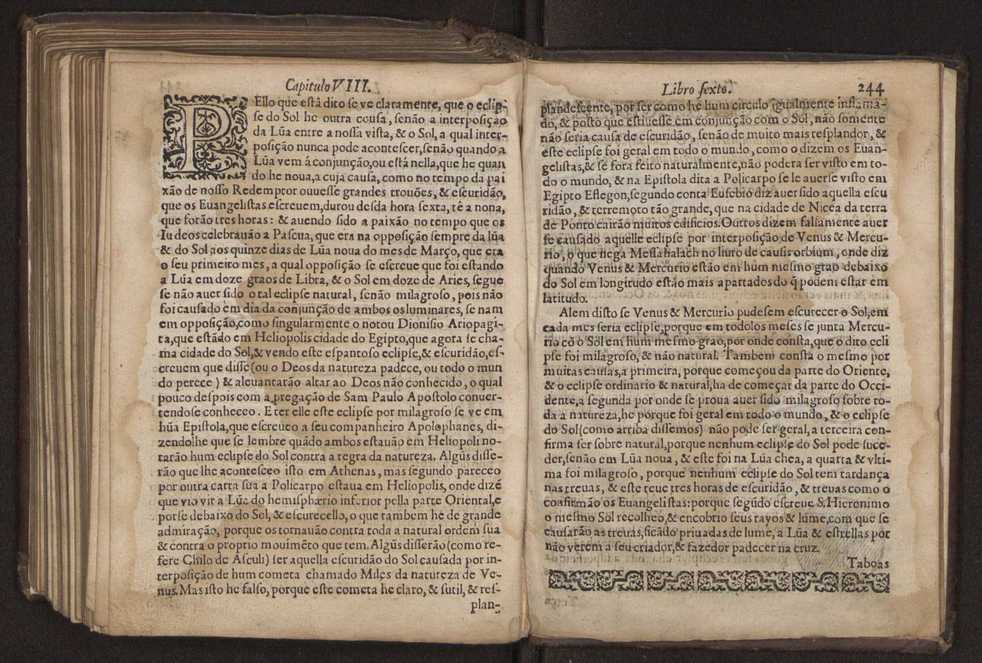 Capitulo VIII.
PEllo que està dito se ve claramente, que o eclip-
se do Sol he outra cousa, senão a interposição
da Lũa entre a nossa vista, & o Sol, a qual inter-
posição nunca pode acontescer, senão quando a
Lũa vem à conjunção, ou està nella, que he quan
do he noua, a cuja causa, como no tempo da pai
xão de nosso Redemptor ouuesse grandes trouões, & escuridão,
que os Euangelistas escreuem, durou desda hora sexta, tè a nona,
que forão tres horas: & auendo sido a paixão no tempo que os
Iudeos celebrauão a Pascua, que era na opposição sempre da lũa
& do Sol aos quinze dias de Lũa noua do mes de Março, que era
o seu primeiro mes, a qual opposição se escreue que foi estando
a Lũa em doze graos de Libra, & o Sol em doze de Aries, segue
se não auer sido o tal eclipse natural, senão milagroso, pois não
foi causado em dia da conjunção de ambos os luminares, se nam
em opposição, como singularmente o notou Dionisio Ariopagi-
ta, que estãdo em Heliopolis cidade do Egipto, que agora se cha-
ma cidade do Sol, & vendo este espantoso eclipse, & escuridão, es-
creuem que disse (ou o Deos da natureza padece, ou todo o mun
do perece) & aleuantarão altar ao Deos não conhecido, o qual
pouco despois com a pregação de Sam Paulo Apostolo conuer-
tendose conheceo. E ter elle este eclipse por milagroso se ve em
hũa Epistola, que escreueo a seu companheiro Apolophanes, di-
zendolhe que se lembre quãdo ambos estauão em Heliopoli no-
tarão hum eclipse do Sol contra a regra da natureza. Algũs disse-
rão que lhe aconteceo isto em Athenas, mas segundo pareceo
por outra carta sua a Policarpo estaua em Heliopolis, onde dizê
que vio vir a Lũa do hemisphærio inferior pella parte Oriental, e
porse debaixo do Sol, & escurecello, o que tambem he de grande
admiração, porque os tornauão contra toda a natural ordem sua
& contra o proprio mouimẽto que tem. Algũs disserão (como re-
fere Chilo de Asculi) ser aquella escuridão do Sol causada por in-
terposição de hum cometa chamado Miles da natureza de Ve-
nus. Mas isto he falso, porque este cometa he claro, & sutil, & res-
plan-
Libro sexto. 244
plandescente, por ser como he hum circulo igualmente inflama-
do, & posto que estiuesse em conjunção com o Sol, não somente
não seria causa de escuridão, senão de muito mais resplandor, &
este eclipse foi geral em todo o mundo, como o dizem os Euan-
gelistas, & se fora feito naturalmente, não podera ser visto em to-
do o mundo, & na Epistola dita a Policarpo se le auerse visto em
Egipto Eflegon, segundo conta Eusebio diz auer sido aquella escu
ridão, & terremoto tão grande, que na cidade de Nicea da terra
de Ponto cairão muitos edificios. Outros dizem falsamente auer
se causado aquelle eclipse por interposição de Venus & Mercu-
rio, o que nega Messahalach no liuro de causis orbium, onde diz
quando Venus & Mercurio estão em hum mesmo grao debaixo
do Sol em longitudo estão mais apartados do q̃ podem estar em
latitudo.
Alem disto se Venus & Mercurio pudesem escurecer o Sol, em
cada mes seria eclipse, porque em todolos meses se junta Mercu-
rio cõ o Sol em hum mesmo grao, por onde consta, que o dito ecli
pse foi milagroso, & não natural. Tambem consta o mesmo por
muitas causas, a primeira, porque começou da parte do Oriente,
& o eclipse ordinario & natural, ha de começar da parte do Occi-
dente, a segunda por onde se proua auer sido milagroso sobre to-
da a natureza, he porque foi geral em todo o mundo, & o eclipse
do Sol (como arriba dissemos) não pode ser geral, a terceira con-
firma ser sobre natural, porque nenhum eclipse do Sol pode suce-
der, senão em Lũa noua, & este foi na Lũa chea, a quarta & vlti-
ma foi milagroso, porque nenhum eclipse do Sol tem tardança
nas treuas, & este teue tres horas de escuridão, & treuas como o
confirmão os Euangelistas: porque segũdo escreue S. Hieronimo
o mesmo Sol recolheo, & encobrio seus rayos & lume, com que se
causarão as treuas, ficãdo priuadas de lume, a Lũa & estrellas por
não verem a seu criador, & fazedor padecer na cruz.
Taboas